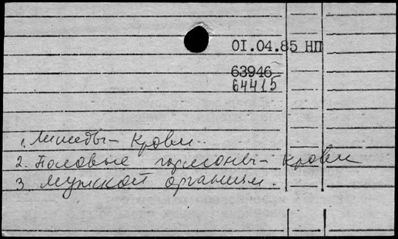 01.04.85 НП
63946
64415
1. Липиды - крови.
2. Половые гормоны - крови
3. Мужской организм.